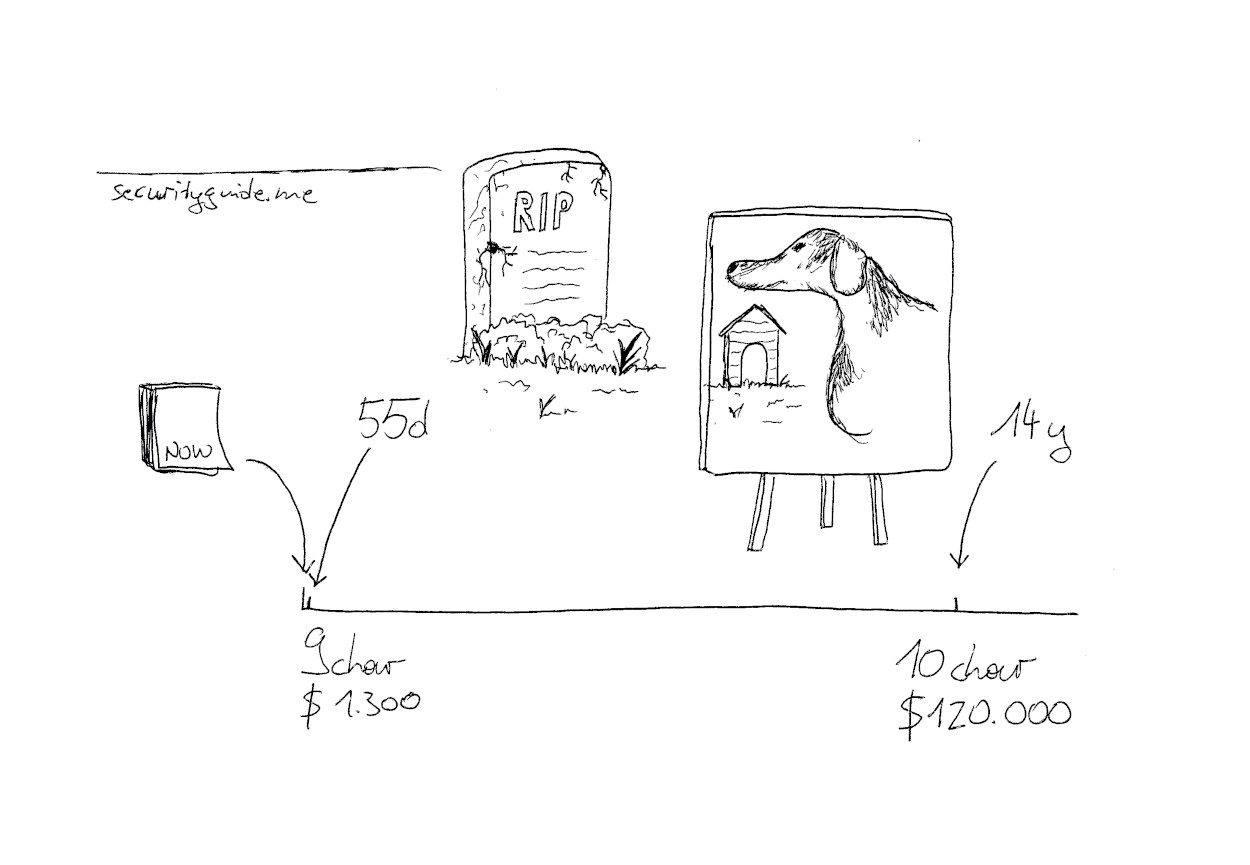 securityguide.me
RIP
NOW
55d
14y
9 char
$ 1.300
10 char
$120.000